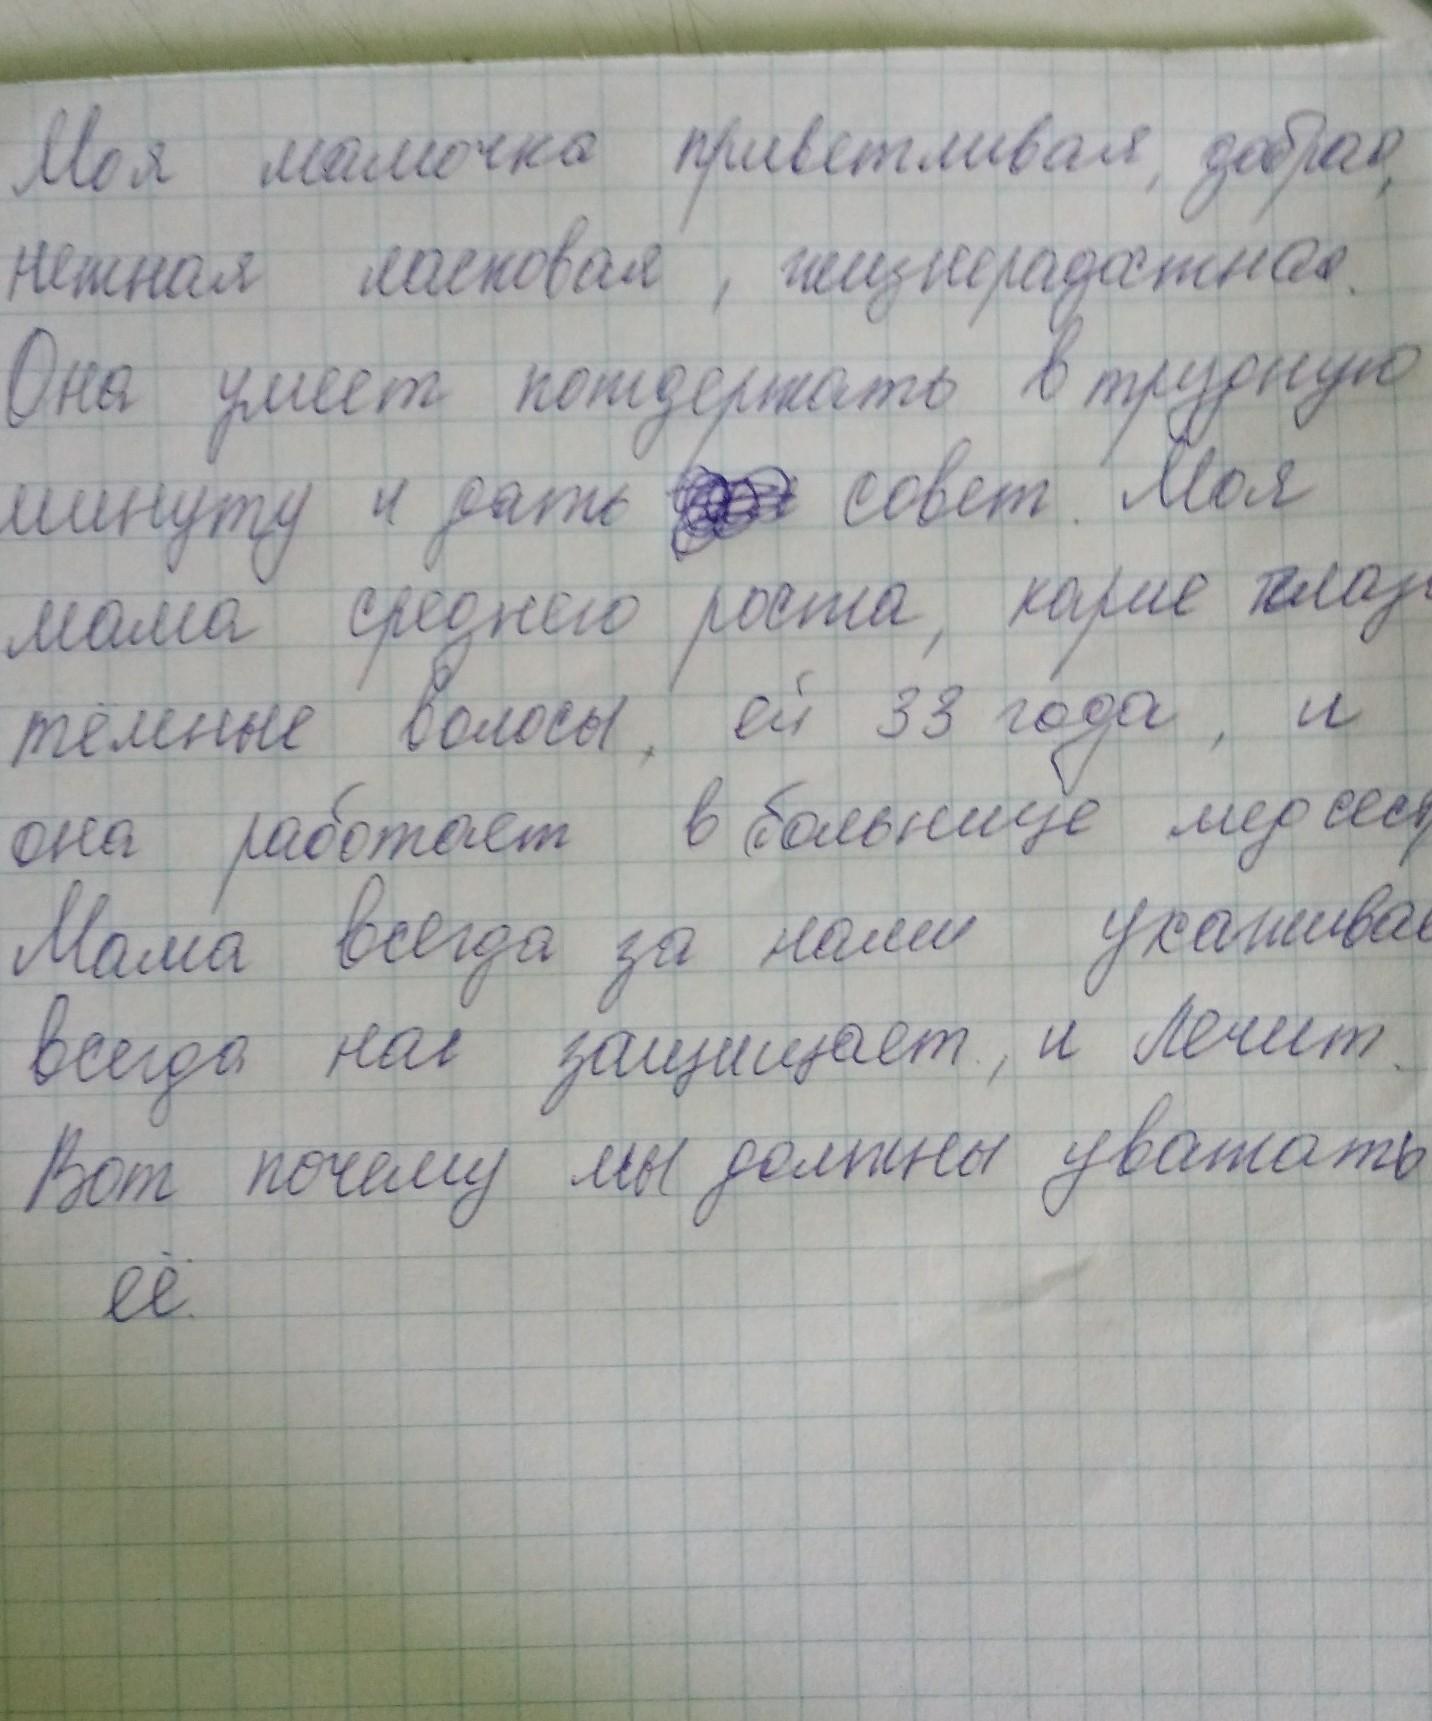 Моя мамочка приветливая, добрая,
нежная ласковая, жизнерадостная.
Она умеет пождержать в трудную
минуту и дать совет. Моя
мама среднего роста, карие глаз
тёмные волосы, ей 33 года, и
она работает в больнице медсест
Мама всегда за нами ухаживае
всегда нас защищает, и лечит.
Вот почему мы должны уважать
её.